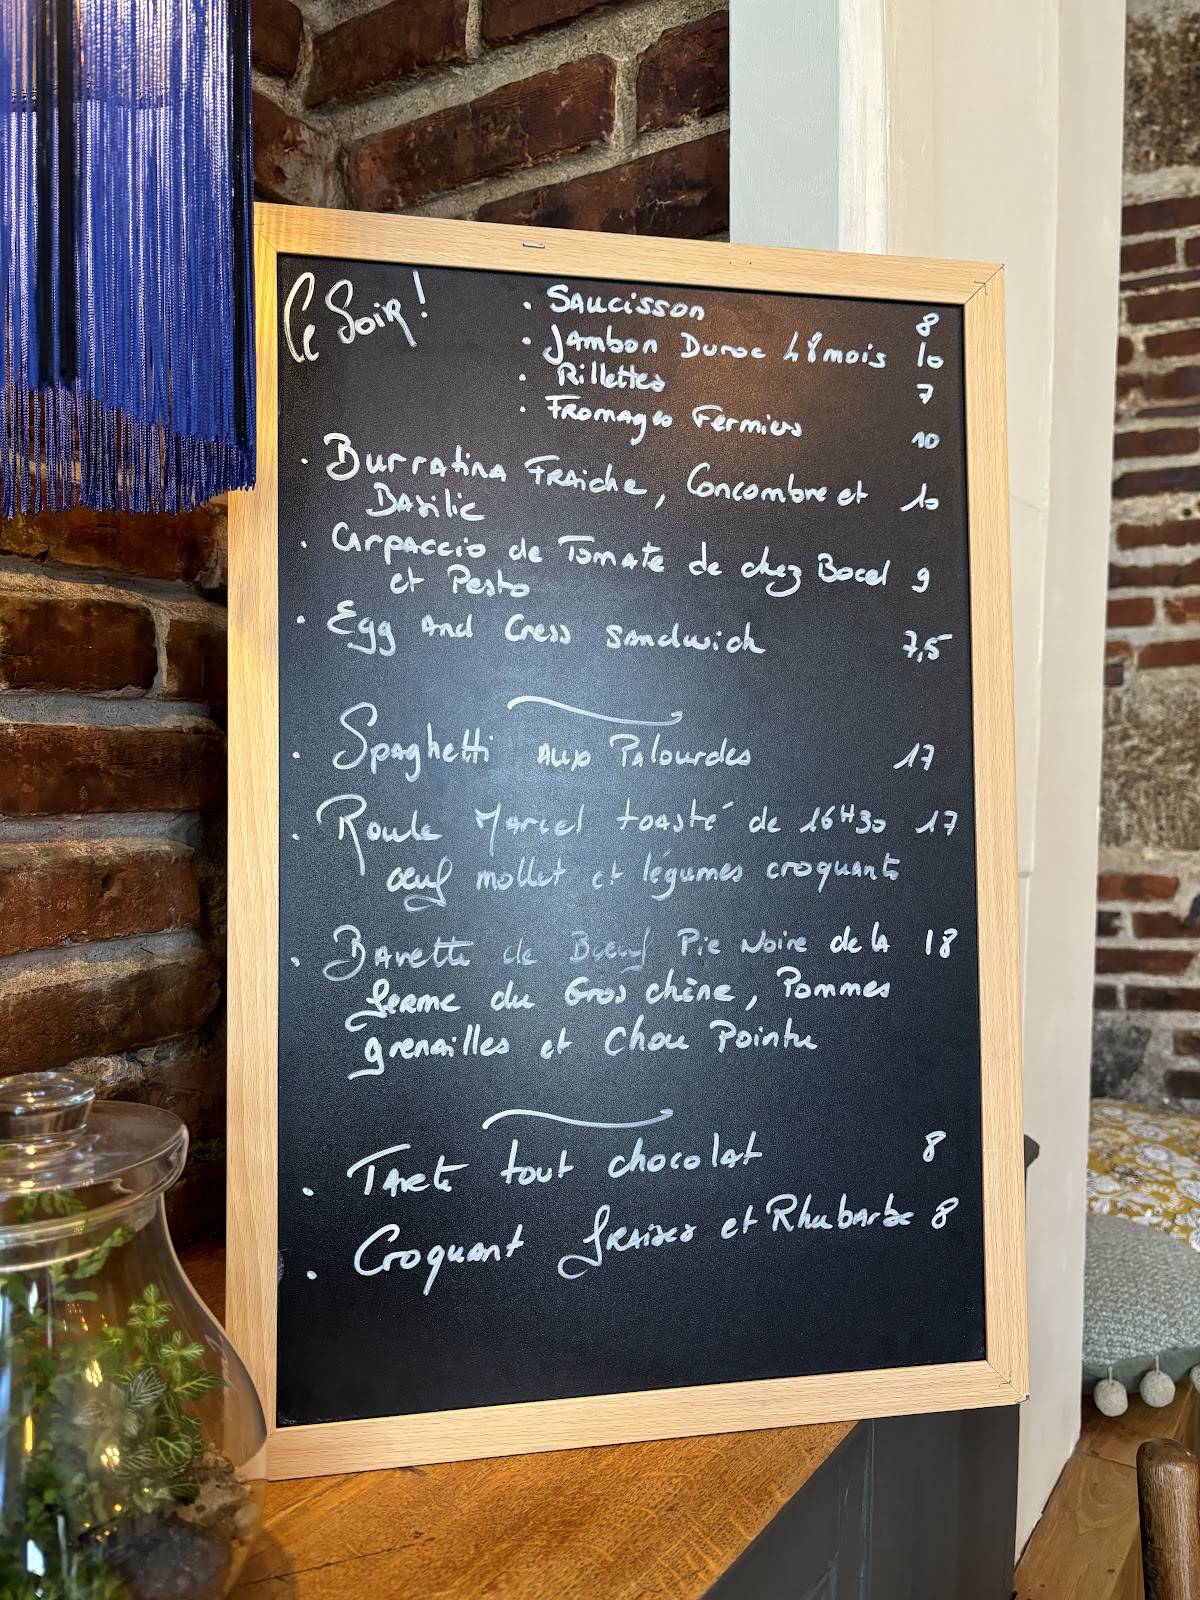 Ce Soir !
• Saucisson 8
• Jambon Duroc 48 mois 10
• Rillettes 7
• Fromages Fermiers 10
• Burratina Fraiche, Concombre et 10
Basilic
• Carpaccio de Tomate de chez Bocel 9
et Pesto
• Egg and Cress sandwich 7,5
• Spaghetti aux Palourdes 17
• Roule Marcel toasté de 16H30 17
œuf mollet et légumes croquants
• Bavette de Bœuf Pie Noire de la 18
ferme du Gros chêne, Pommes
grenailles et Chou Pointu
• Tarte tout chocolat 8
• Croquant fraises et Rhubarbe 8